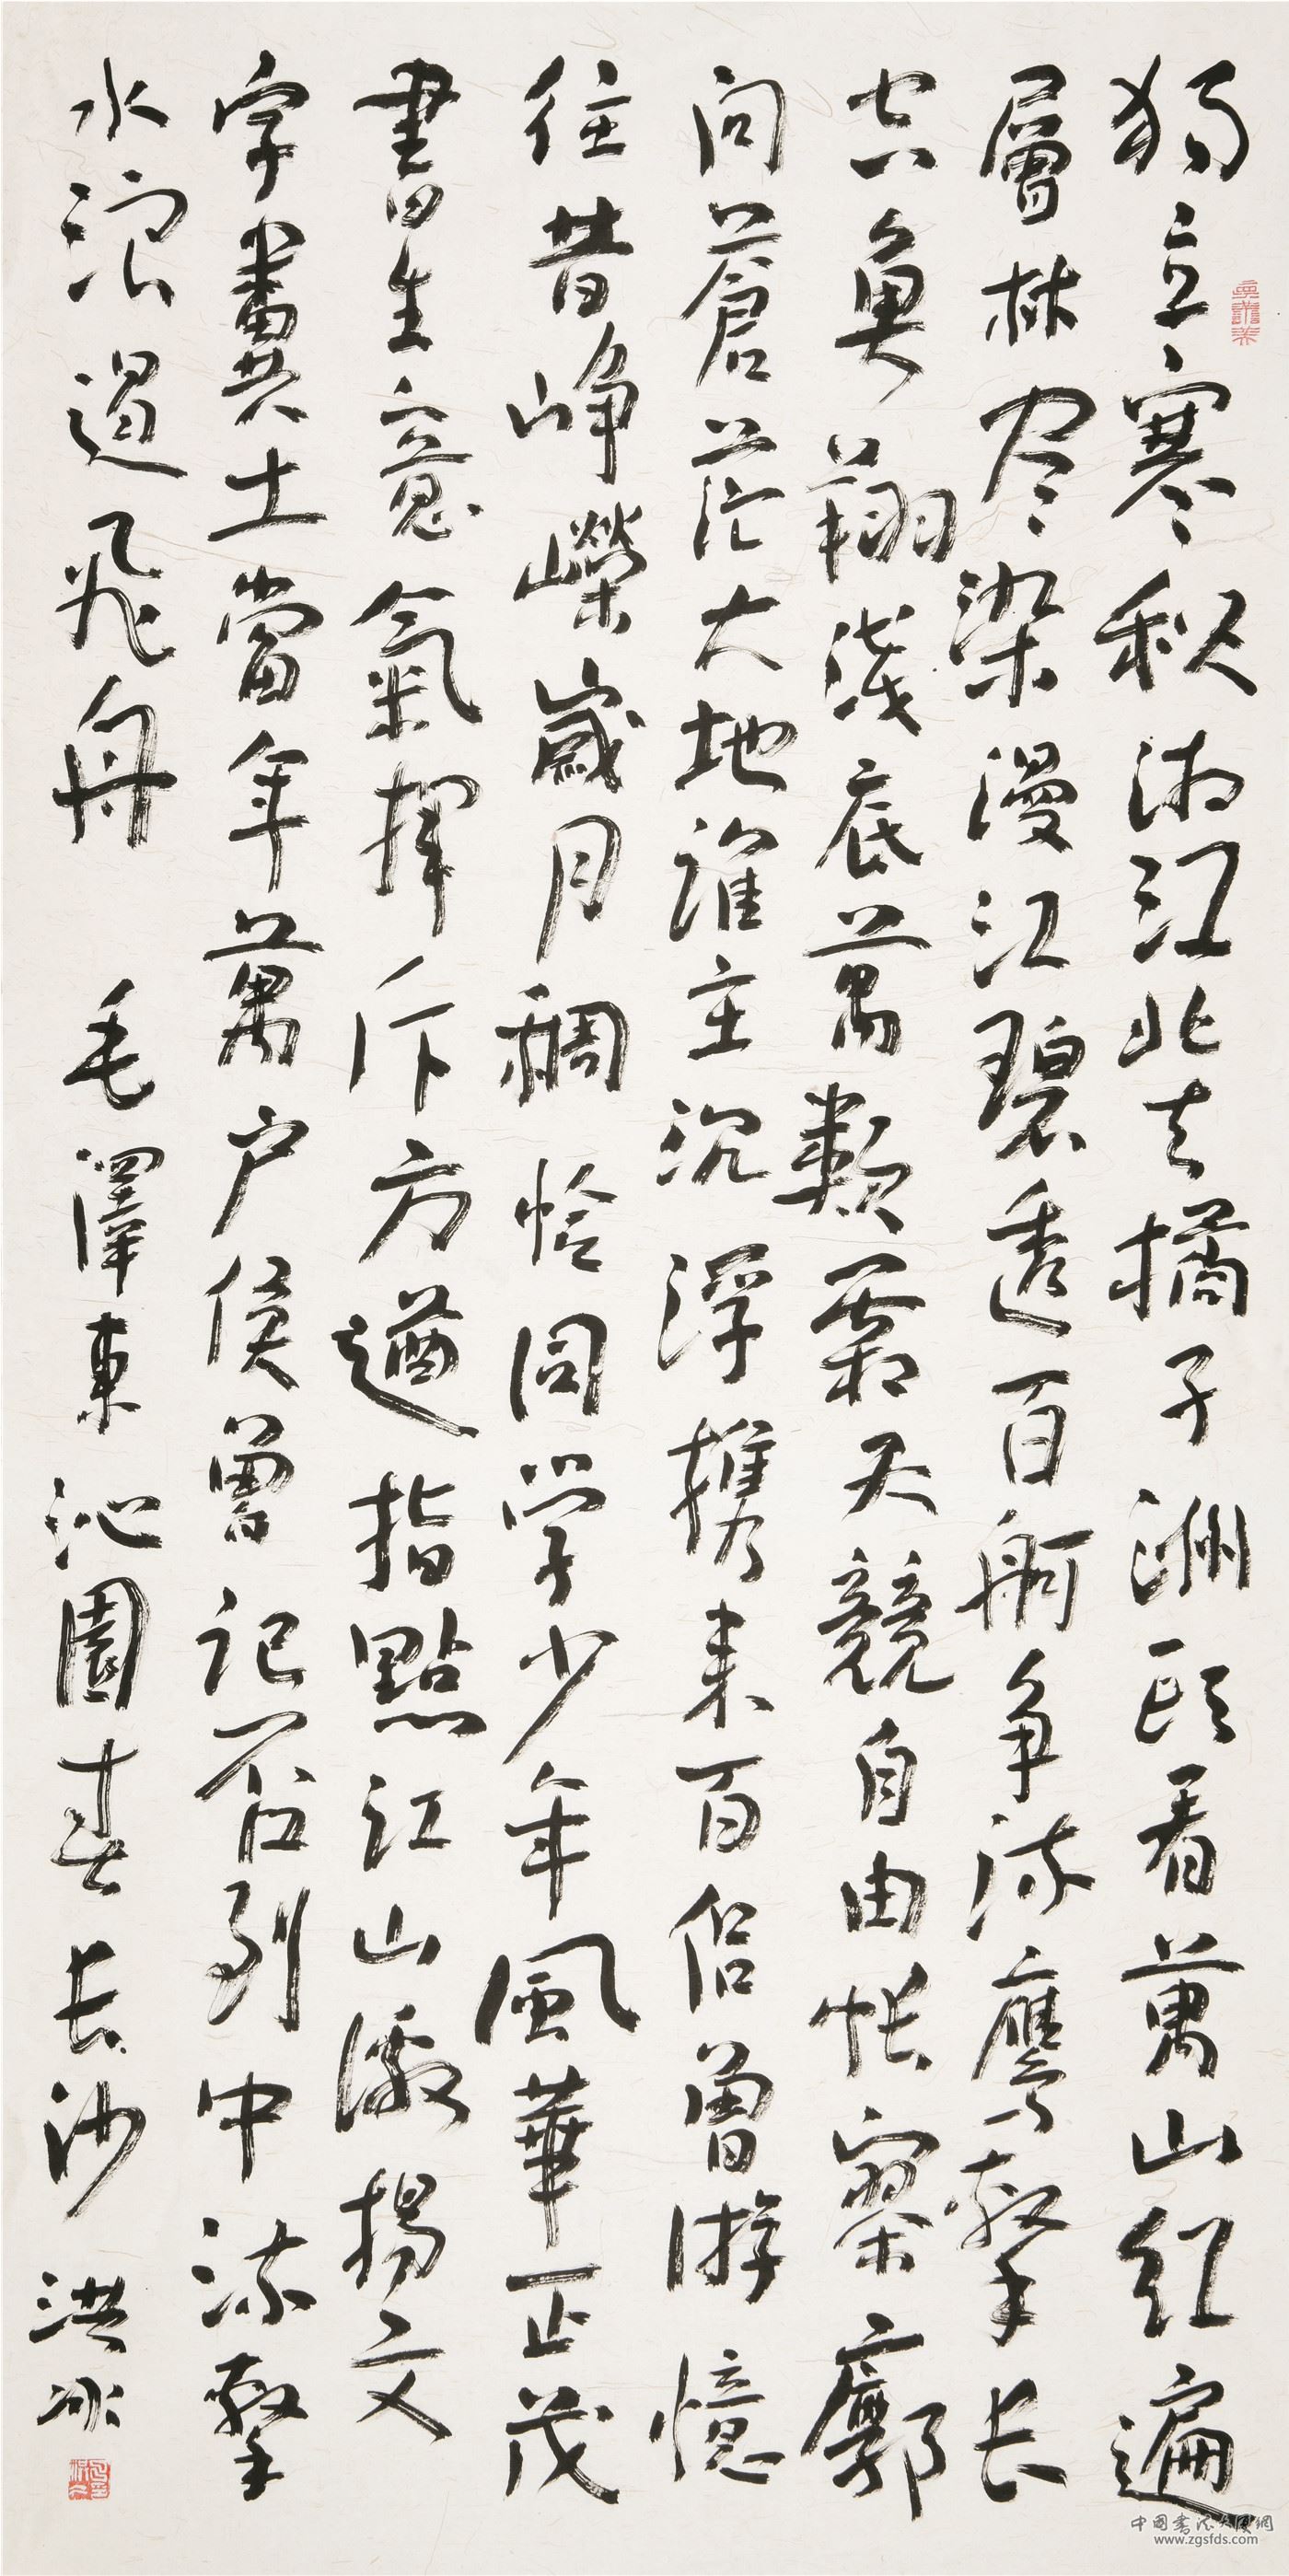 獨立寒秋湘江北去橘子洲頭看萬山紅遍
層林尽染漫江碧透百舸争流鷹擊长
空魚翔淺底萬類霜天競自由悵寥廓
問蒼茫大地誰主沉浮攜来百侣曾游憶
往昔崢嶸歲月稠恰同学少年風華正茂
書生意氣揮斥方遒指點江山激揚文
字糞土當年萬户侯曾記否到中流擊
水浪遏飛舟 毛澤東沁園春长沙 洪冰
中國書法大廈網
www.zgsfds.com